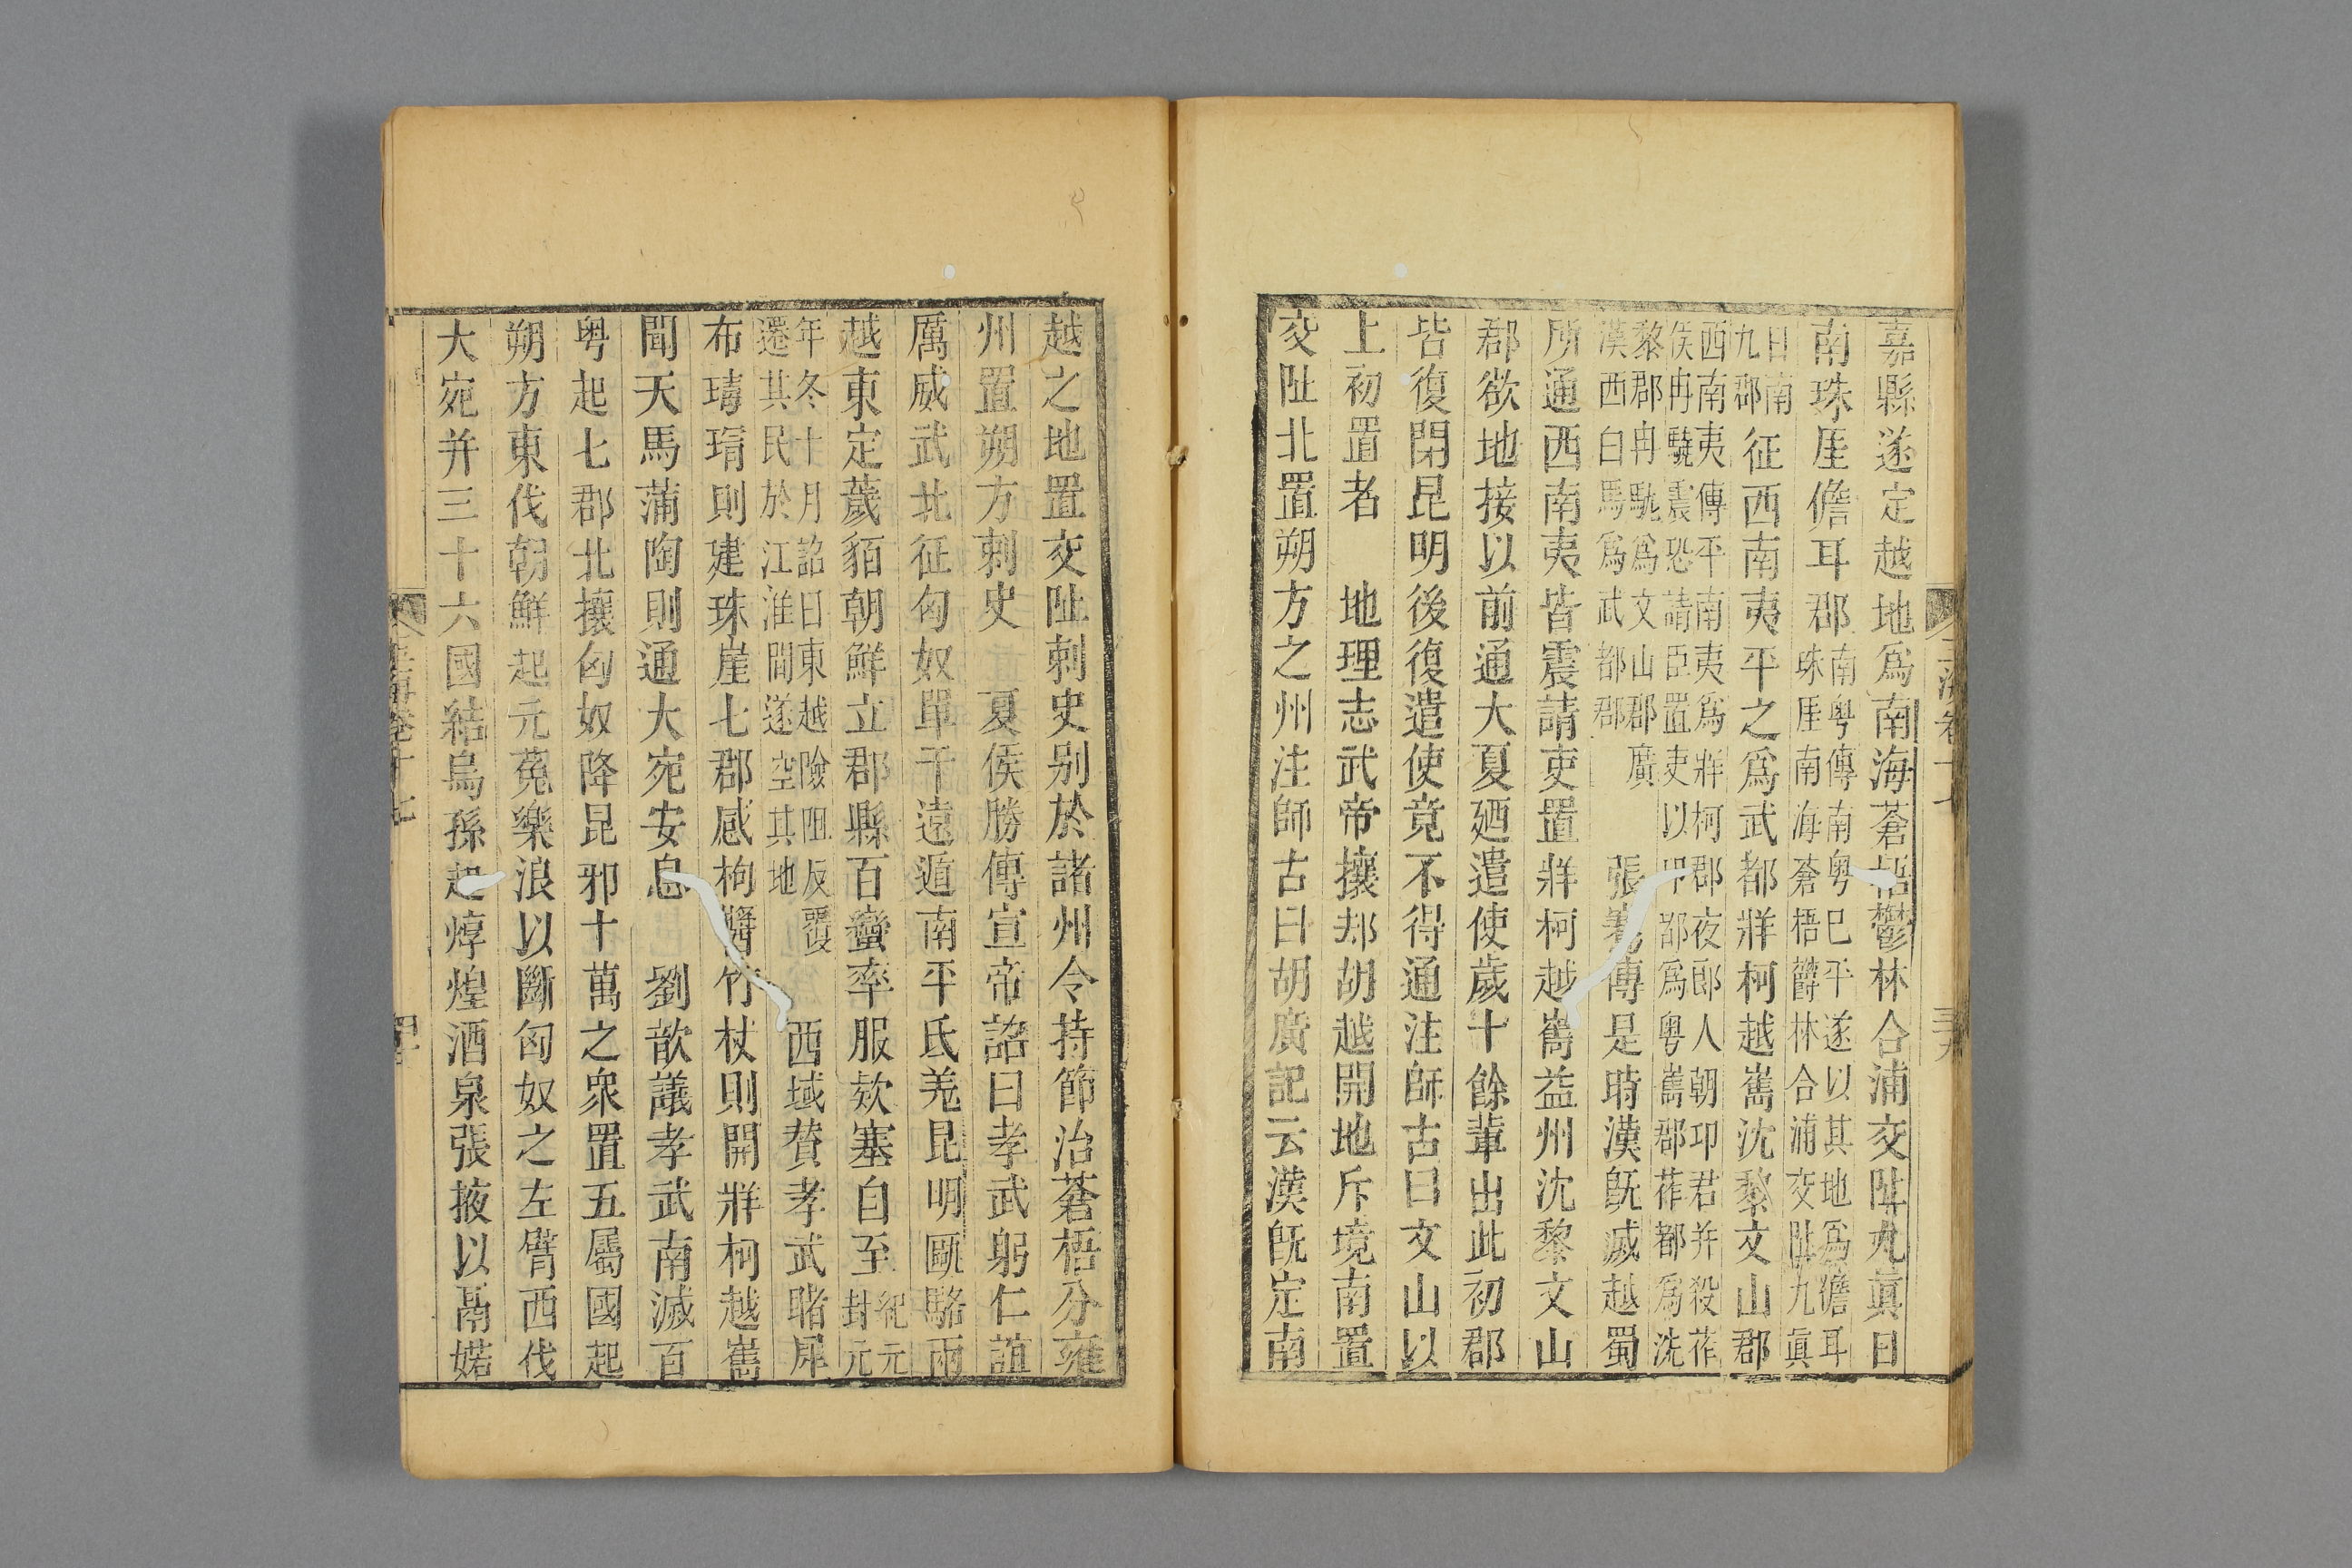 嘉縣遂定越地爲南海蒼梧鬱林合浦交阯九眞日
南珠厓儋耳郡南粤傳南粤巳平遂以其地爲儋耳珠厓南海蒼梧欝林合浦交阯九眞
日南九郡征西南夷平之爲武都牂柯越嶲沈黎文山郡
西南夷傳平南夷爲牂柯郡夜郎人朝卭君并殺莋侯冉駹震恐請臣置吏以卭都爲粤嶲郡莋都爲沈
黎郡冉駹爲文山郡廣漢西白馬爲武都郡張騫傳是時漢旣滅越蜀
所通西南夷皆震請吏置牂柯越嶲益州沈黎文山
郡欲地接以前通大夏廼遣使歲十餘輩出此初郡
皆復閉昆明後復遣使竟不得通注師古曰文山以
上初置者　地理志武帝攘却胡越開地斥境南置
交阯北置朔方之州注師古曰胡廣記云漢旣定南
越之地置交阯刺史别於諸州令持節治蒼梧分雍
州置朔方刺史　夏侯勝傳宣帝詔曰孝武躬仁誼
厲威武北征匈奴單于遠遁南平氐羌昆明甌駱兩
越東定薉貊朝鮮立郡縣百蠻率服欵塞自至紀元封元
年冬十月詔曰東越險阻反覆遷其民於江淮閒遂空其地　西域贊孝武睹犀
布瑇瑁則建珠崖七郡感枸醬竹杖則開牂柯越嶲
聞天馬蒲陶則通大宛安息　劉歆議孝武南滅百
粤起七郡北攘匈奴降昆邪十萬之衆置五屬國起
朔方東伐朝鮮起元菟樂浪以斷匈奴之左臂西伐
大宛并三十六國結烏孫起焞煌酒泉張掖以鬲婼